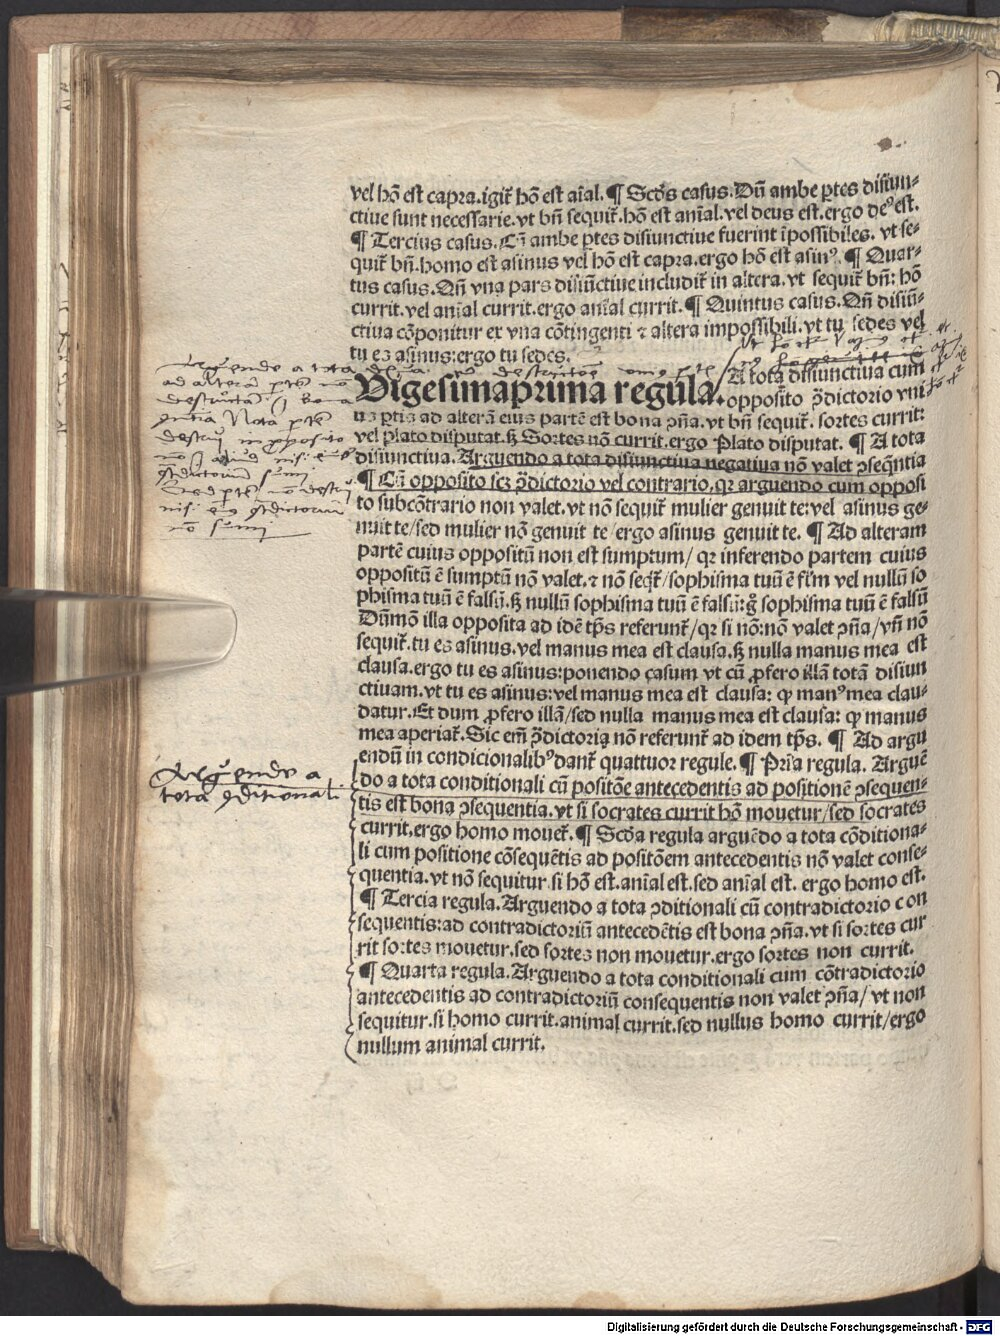 vel hō est capra.igit᷑ hō est aīal.¶ Scd̄s casus.Dn̄ ambe ꝑtes disiun⸗
ctiue sunt necessarie.vt bn̄ sequit᷑.hō est anīal.vel deus est.ergo deꝰ est.
¶ Tercius casus.Cū ambe ꝑtes disiunctiue fuerint īpossibiles. vt se⸗
quit᷑ bn̄.homo est asinus vel hō est capra.ergo hō est asinꝰ. ¶ Quar⸗
tus casus.Qn̄ vna pars disiūctiue includit᷑ in altera.vt sequit᷑ bn̄: hō
currit.vel anīal currit.ergo anīal currit.¶ Quintus casus.Qn̄ disiū⸗
ctiua cōponitur ex vna cōtingenti ⁊ altera impossibili.vt tu sedes vel
tu es asinus:ergo tu sedes.
Vigesimaprima regula. A tota disiunctiua cum
opposito ꝯ̄dictorio vni⸗
us ꝑtis ad alterā eius partē est bona ꝯn̄a.vt bn̄ sequit᷑. sortes currit:
vel plato disputat.ꝫ Sortes nō currit.ergo Plato disputat. ¶ A tota
disiunctiua.Arguendo a tota disiunctiua negatiua nō valet ꝯseqn̄tia
¶ Cū opposito scꝫ ꝯ̄dictorio vel contrario,qꝛ arguendo cum opposi
to subcōtrario non valet.vt nō sequit᷑ mulier genuit te:vel asinus ge⸗
nuit te/sed mulier nō genuit te/ergo asinus genuit te. ¶ Ad alteram
partē cuius oppositū non est sumptum/ qꝛ inferendo partem cuius
oppositū ē sumptū nō valet.⁊ nō seqt᷑/sophisma tuū ē falm̄ vel nullū so
phisma tuū ē falsū.ꝫ nullū sophisma tuū ē falsū:gͦ sophisma tuū ē falsū
Dūmō illa opposita ad idē tp̄s referunt᷑/qꝛ si nō:nō valet ꝯn̄a/vn̄ nō
sequit᷑.tu es asinus.vel manus mea est clausa.ꝫ nulla manus mea est
clausa.ergo tu es asinus:ponendo casum vt cū ꝓfero illā totā disiun
ctiuam.vt tu es asinus:vel manus mea est clausa: ꝙ manꝰ mea clau⸗
datur.Et dum ꝓfero illā/sed nulla manus mea est clausa: ꝙ manus
mea aperiat᷑.Sic em̄ ꝯ̄dictoria nō referunt᷑ ad idem tp̄s. ¶ Ad argu
endū in condicionalibꝰ dant᷑ quattuor regule.¶ Prīa regula. Arguē
do a tota conditionali cū positōe antecedentis ad positionē ꝯsequen⸗
tis est bona ꝯsequentia.vt si socrates currit hō mouetur/sed socrates
currit.ergo homo mouet᷑.¶ Scd̄a regula arguēdo a tota cōditiona⸗
li cum positione cōsequētis ad positōem antecedentis nō valet conse⸗
quentia.vt nō sequitur si hō est.anīal est.sed anīal est. ergo homo est.
¶ Tercia regula.Arguendo a tota ꝯditionali cū contradictorio con
sequentis:ad contradictoriū antecedētis est bona ꝯn̄a.vt si sortes cur
rit sortes mouetur.sed sortes non mouetur.ergo sortes non currit.
¶ Quarta regula.Arguendo a tota conditionali cum cōtradictorio
antecedentis ad contradictoriū consequentis non valet ꝯn̄a/ vt non
sequitur.si homo currit.animal currit.sed nullus homo currit/ergo
nullum animal currit.
Arguendo a
tota ꝯditionali
Digitalisierung gefördert durch die Deutsche Forschungsgemeinschaft - DFG